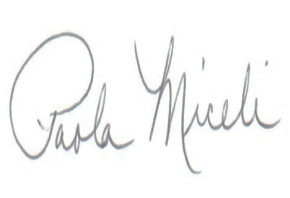 Paola Miceli